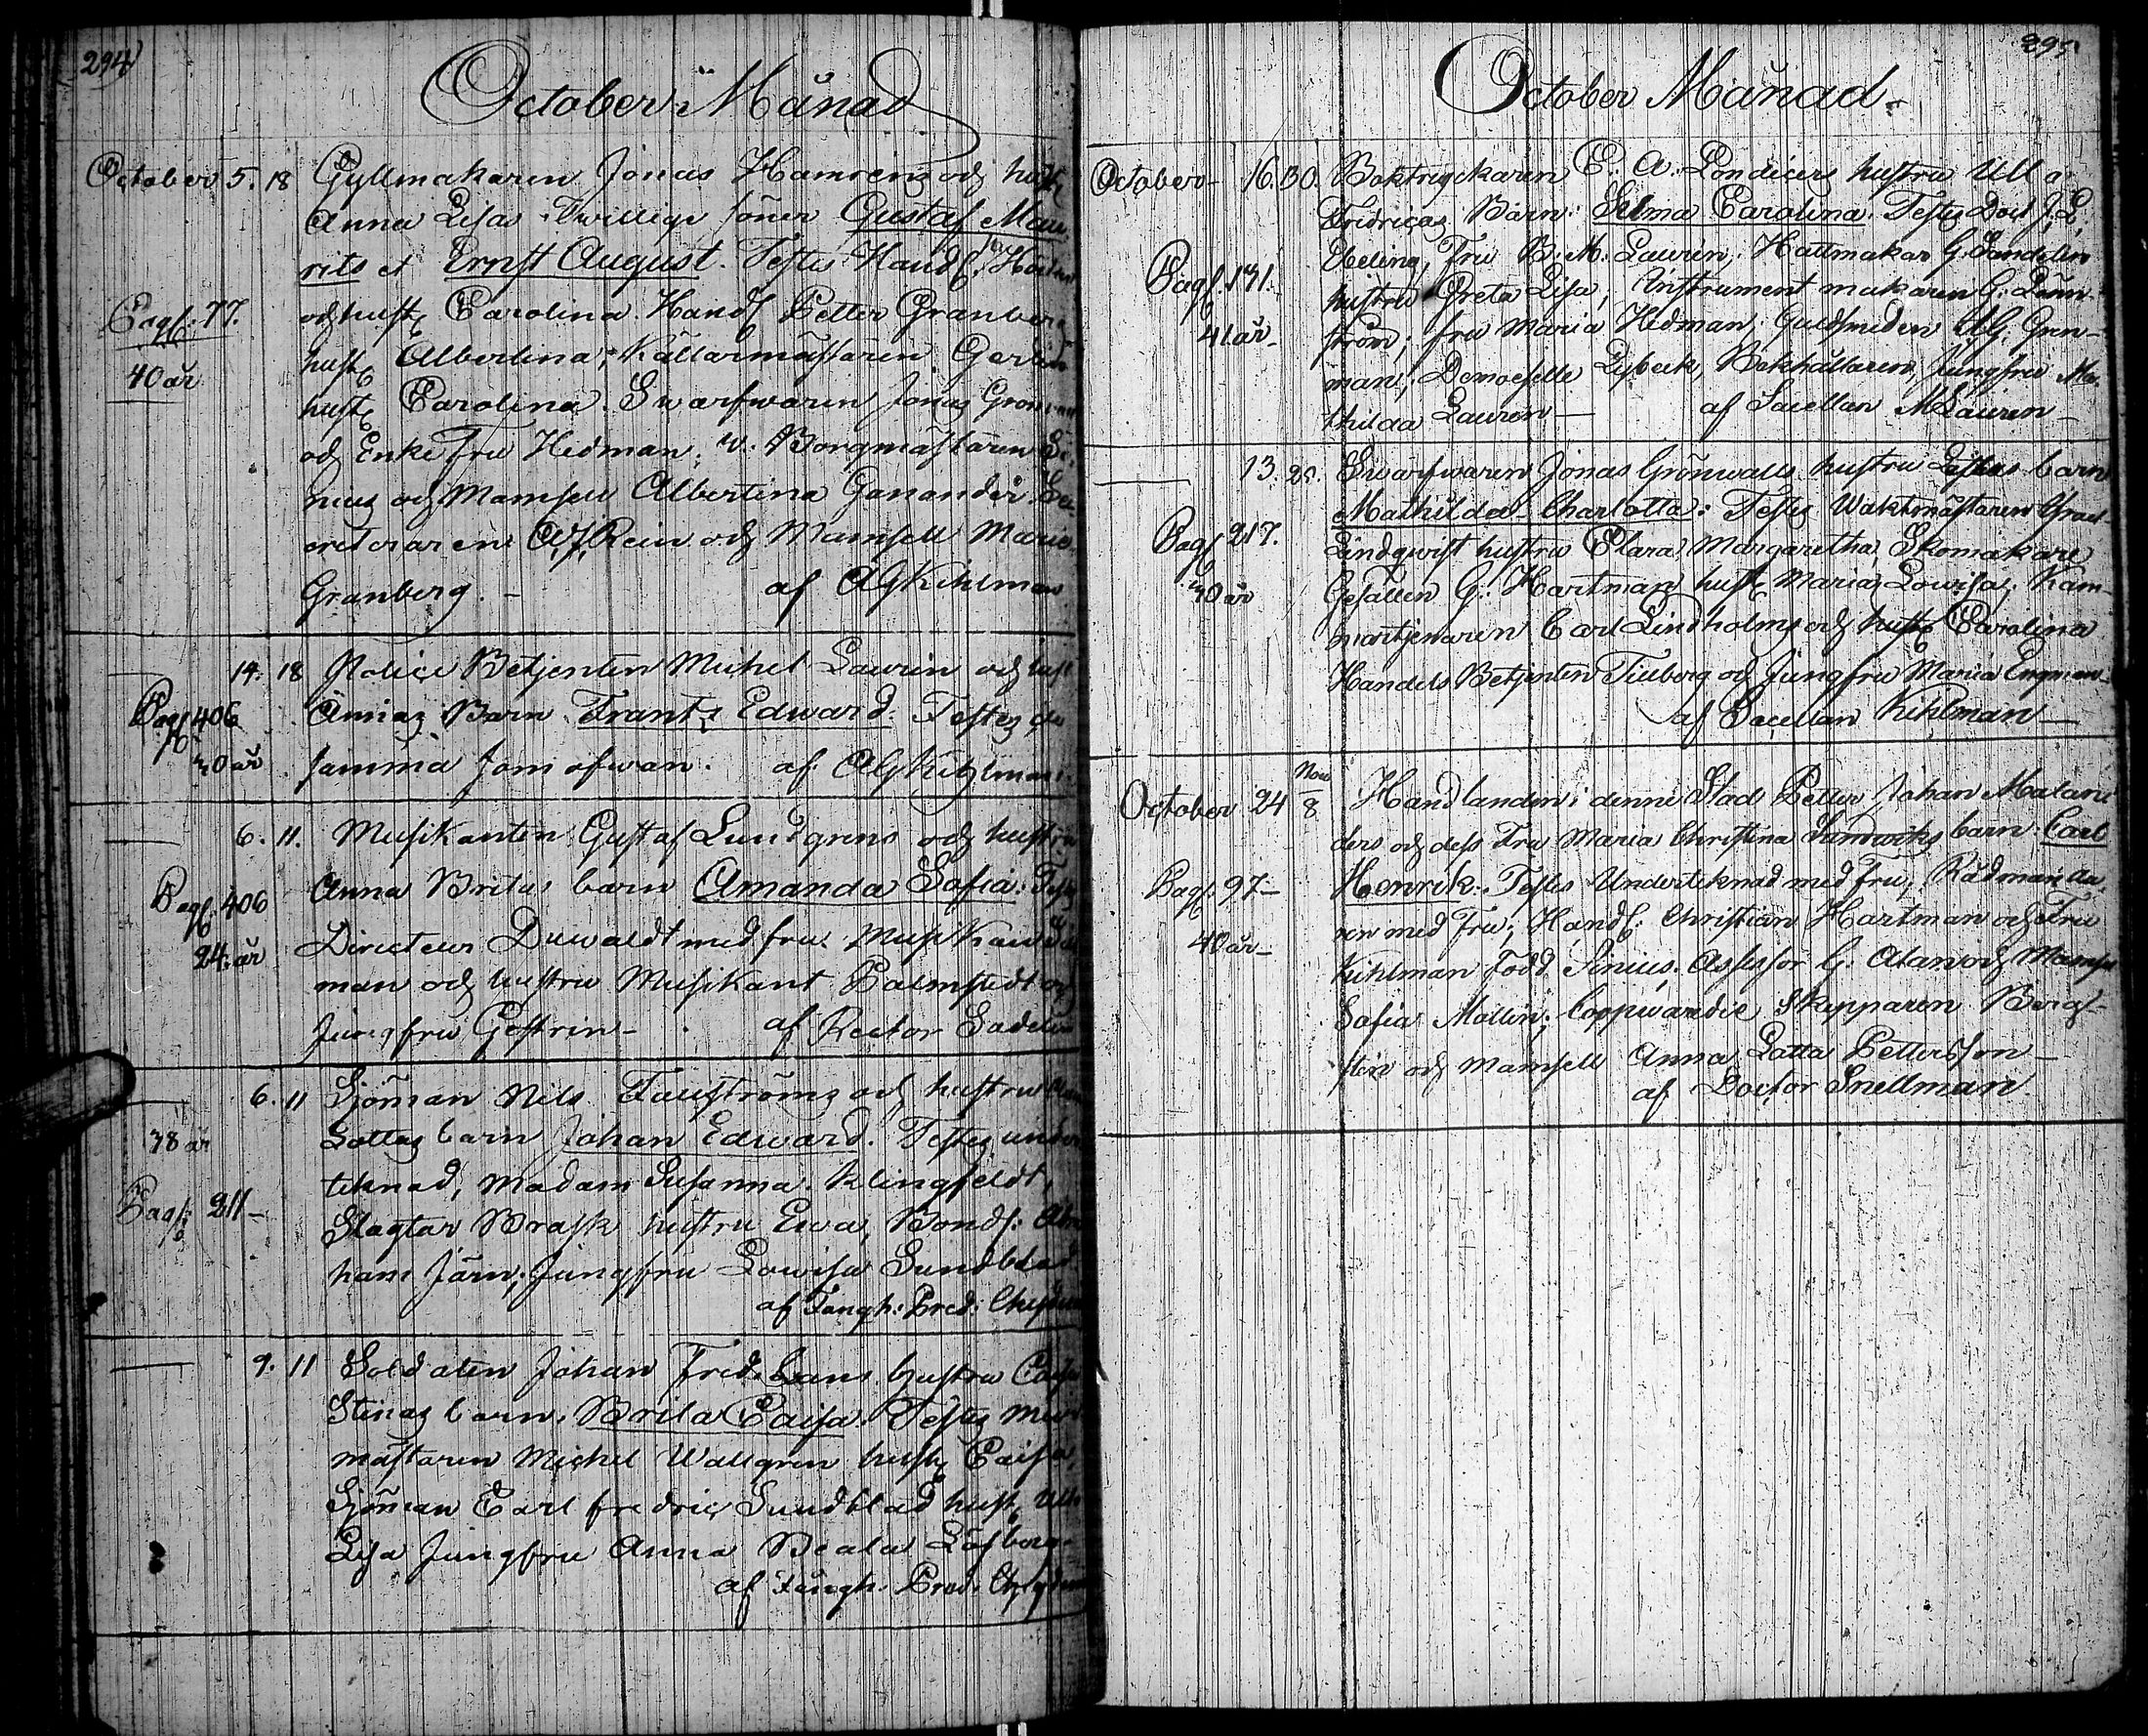 294
October Månad
October 5. 18 Gyllmakaren Jonas Hamrens och hust
Anna Lisas Twillige söner Gustaf Mau
rits et Ernst August. Testes Handl:
och hust Carolina. Handl Petter Granberg
Pagf: 77.
hust Albertina, Källarmästaren
40 år
hust Carolina. Swarfwaren Jonas
och Enke Fru Hedman, v. Borgmästaren
nius och Mamsell Albertina Ganander.
och Mamsell Marie
Granberg. af Kihlman
14. 18 Police Betjenten Michel Laurin och
Pagf 406 Annas Barn Frants Edward. Testes
40 år samma som ofwan. af Kihlman
6. 11. Musikanten Gustaf Lundgrens och hustru
Pagf: 406 Anna Britas barn Amanda Sofia.
24: år Directeur Duwaldt med fru.
man och hustru Musikant Palmstedt
Jungfru Gestrin - af Rector
6. 11 Sjöman Nils och hustru
38 år Lottas barn Johan Edward. Testes under
teknad, Madam Susanna Klingfeldt,
Pagf: 211- Slagtar Brask hustru Ewa, Bonds:
ham Järn, Jungfru Lowisa Sundblad
af Fängh: Pred:
9. 11 Soldaten Johan Fred: hustru
Stinas barn. Brita Caisa. Testes Mur
mästaren Michel Wallgren hust Caisa,
Sjöman Carl Fredric Sundblad hust
Lisa Jungfru Anna Beata Löfberg.
af Fängh. Pred.
295
October Månad.
October - 16. 30. Boktryckaren C. A. Londicers hustru Ulla
Fredricas Barn: Selma Carolina. Testes Doct J. L.
Ebeling, Fru B. M. Laurin, Hattmakar G. Sandelin
Pagf. 131. hustru Greta Lisa, Instrument makaren G. Lönn-
41 år- ström; fru Maria Hedman; Guldsmeden A. G. Grön-
man, Demoiselle Lybeck, Bokhållaren, Jungfru Ma-
thilda Laurin - af Sacellan M Laurin -
13. 25. Swarfwaren Jonas Grönwalls hustru barn
Mathilda Charlotta: Testes Waktmästaren
Pagf 217. Lindqwist hustru Clara Margaretha, Skomakare
40 år Gesällen G. Hartman hust Maria Lowisa, Kam-
martjenaren Carl Lindholms och hust Carolina
Handels Betjenten Tilberg och Jungfru Maria Engman
af Sacellan Kihlman -
October 24 Nov 8 Handlanden i denne Stad Petter Johan Malan-
ders och dess Fru Maria Christina barn: Carl
Pagf: 97- Henrik. Testes Underteknad med fru; Rådman
40 år- med Fru; Handl: Christian Hartman och Fru
Kihlman född Sinius. Assessor G. Alan och Mamsel
Sofia Mollin; Coppwardie Skepparen Berg-
sten och Mamsell Anna Lotta Pettersson -
af Doctor Snellman.